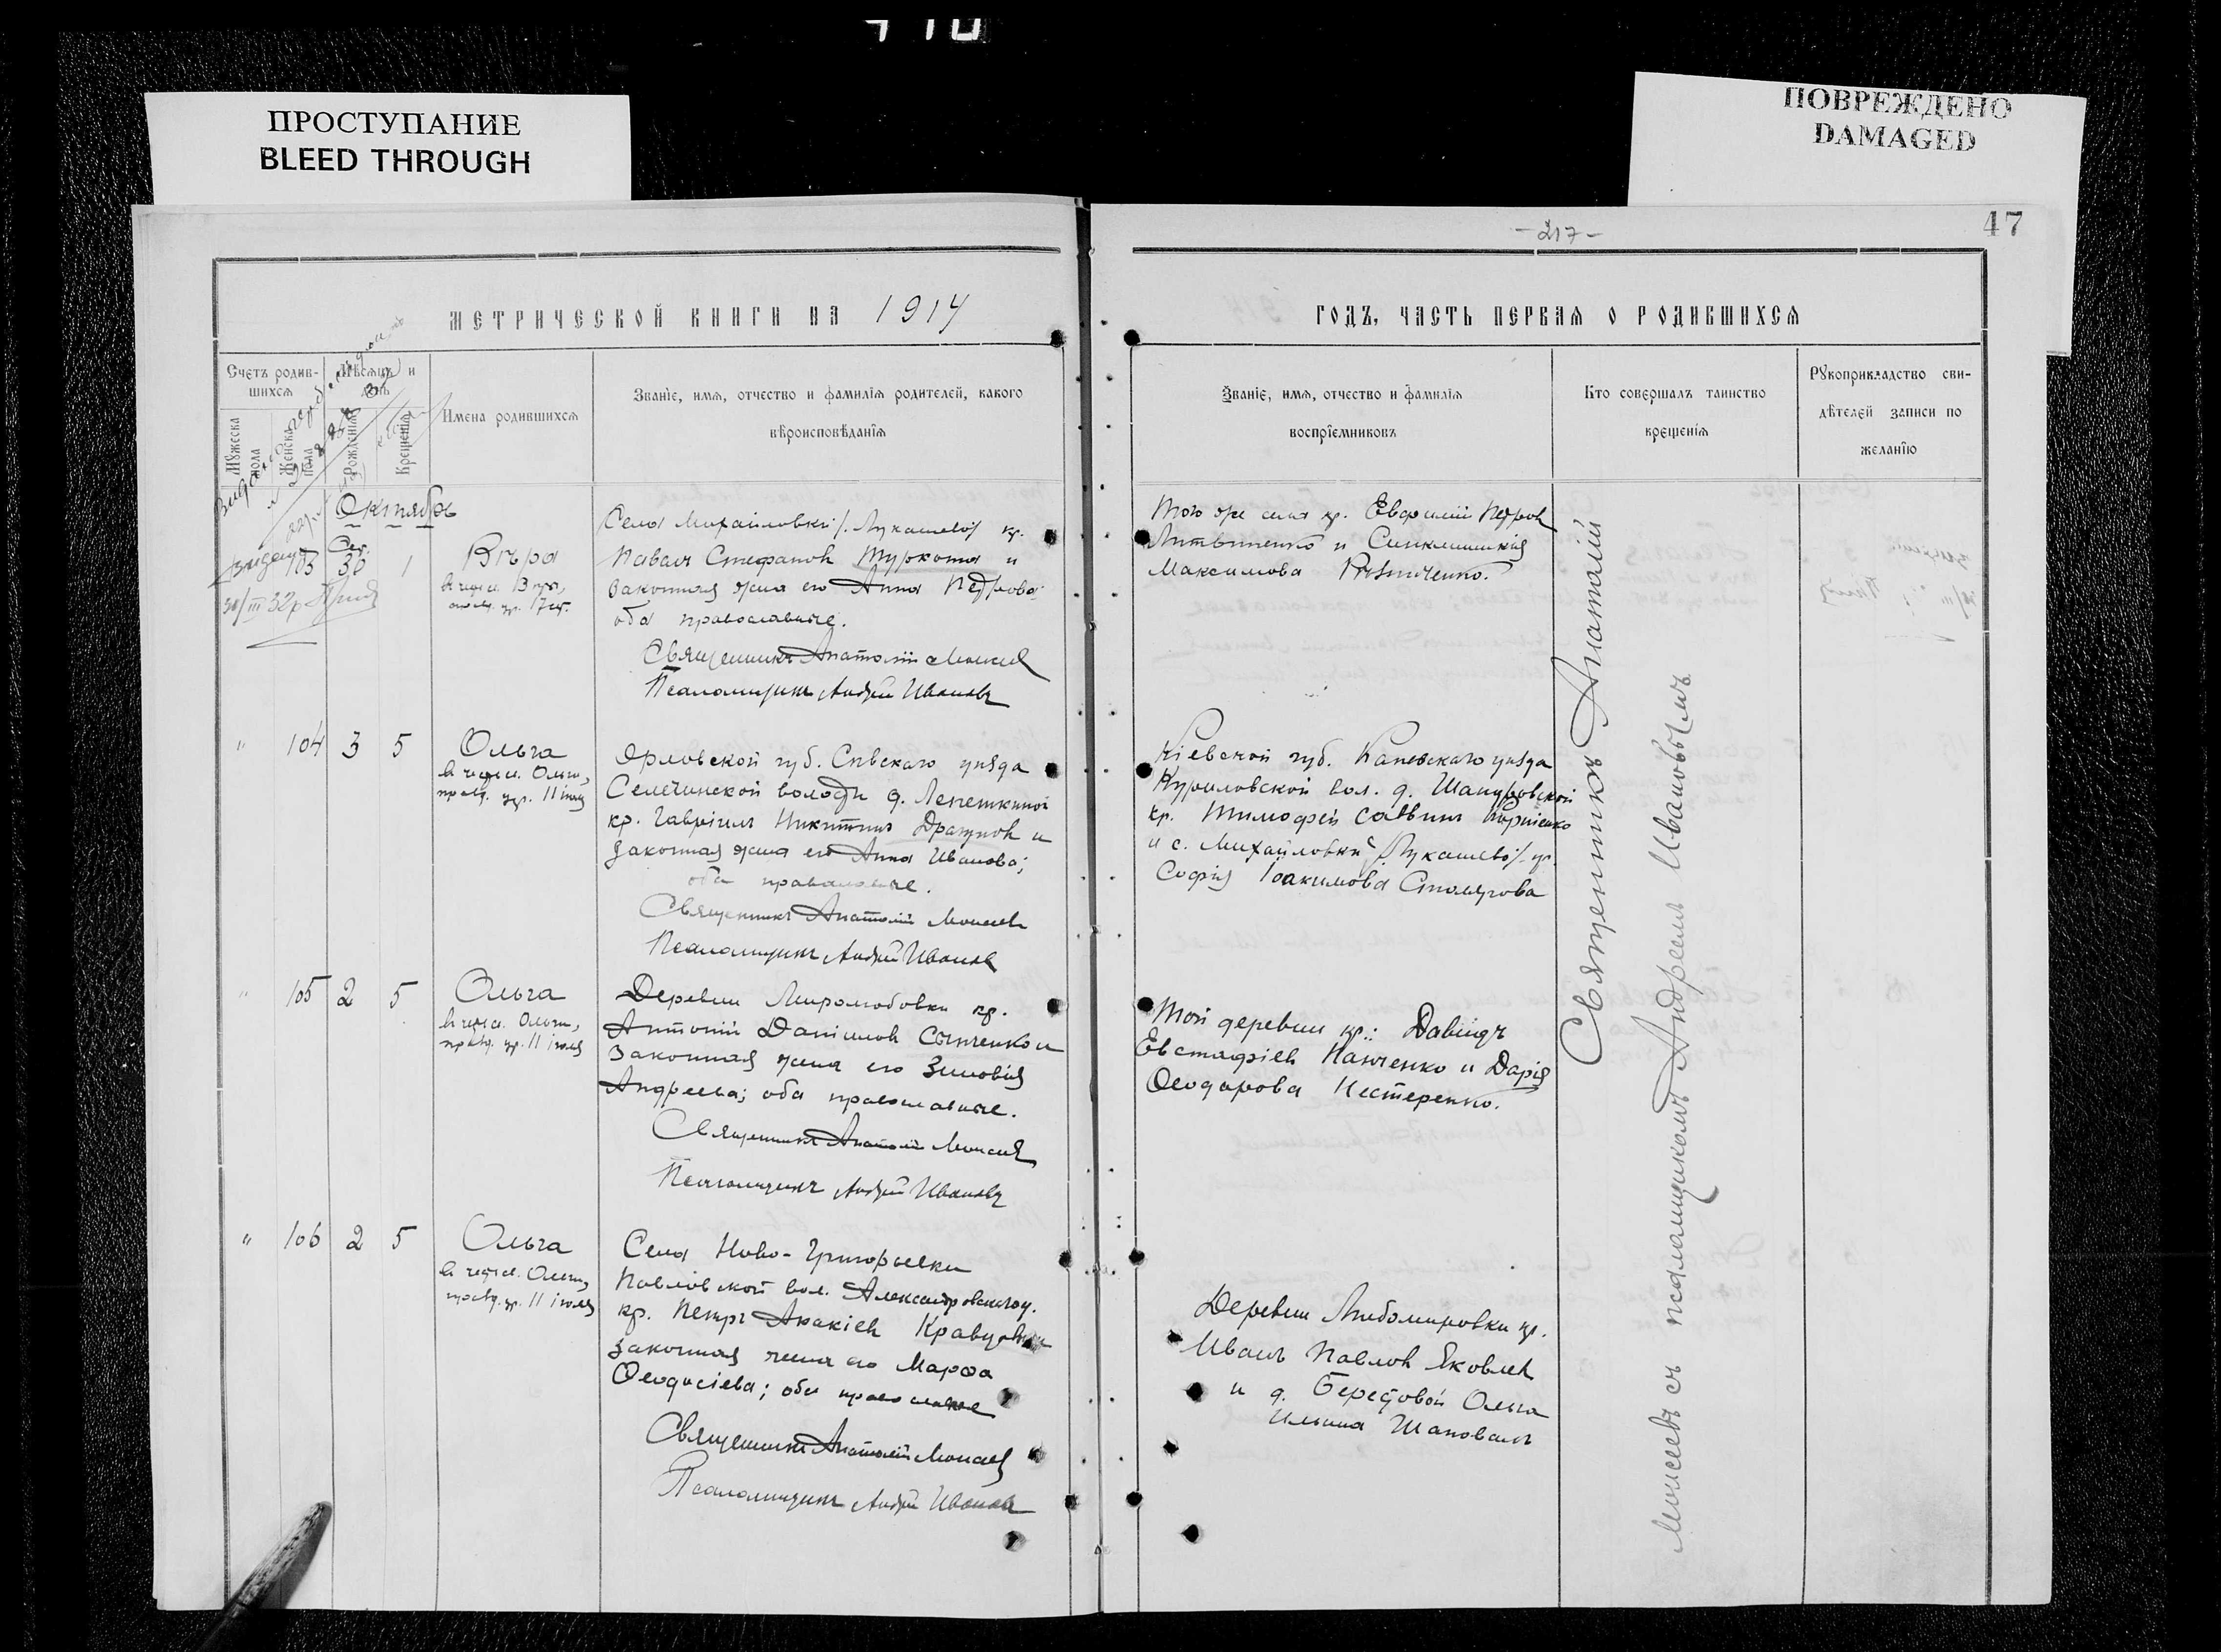 ПРОСТУПАНИЕ
BLEED THROUGH
ПОВРЕЖДЕНО
DAMAGED
- 217 -
47
МЕТРИЧЕСКОЙ КНИГИ НА 1914
ГОДЪ, ЧАСТЬ ПЕРВАЯ О РОДИВШИХСЯ
Счетъ родив-
шихся
Мужеска
пола
Женска
пола
Мѣсяцъ и
день
Рожденія
Крещенія
Имена родившихся
Званіе, имя, отчество и фамилія родителей, какого
вѣроисповѣданія
Званіе, имя, отчество и фамилія
воспріемниковъ
Кто совершалъ таинство
крещенія
Рукоприкладство сви-
дѣтелей записи по
желанію
Октябрь
Сен.
103 30 1
Вѣра
17 сен.
Села Михайловки /Лукашево/ кр.
Павелъ Стефановъ Туркота и
законная жена его Анна Петрова;
оба православные.
Священникъ Анатолій Моисеев
Псаломщикъ Андрей Ивановъ
Того же села кр. Евфимій Петров
Литвиненко и Синклитикія
Максимова
" 104 3 5
Ольга
в честь св. Ольги,
празд. 11 іюля
Орловской губ. Сѣвскаго уѣзда
Селечинской волости д. Лепешкиной
кр. Гавріилъ Никитинъ Драгунов и
законная жена его Анна Иванова;
оба православные.
Священникъ Анатолій Моисеев
Псаломщикъ Андрей Иванов
Кіевской губ. Каневскаго уѣзда
Куриловской вол. д.
кр. Тимофей Саввин
и с. Михайловки /Лукашево/ кр.
Софія Іоакимова Столярова
" 105 2 5
Ольга
в честь св. Ольги,
празд. 11 іюля
Деревни Миролюбовки кр.
Антоній Даніилов Сытченко и
законная жена его Зиновія
Андреева; оба православные.
Священникъ Анатолій Моисеев
Псаломщикъ Андрей Ивановъ
Той деревни кр.: Давидъ
Евстафіев Панченко и Дарія
Ѳеодорова Нестеренко.
" 106 2 5
Ольга
в честь св. Ольги,
празд. 11 іюля
Села Ново-Григорьевки
Павловской вол. Александровскаго у.
кр. Петръ Акакіев Кравцов и
законная жена его Марѳа
Ѳеодосіева; оба православные
Священникъ Анатолій Моисеев
Псаломщикъ Андрей Иванов
Деревни Любомировки кр.
Иванъ Павлов Яковлев
и д. Берестовой Ольга
Ильина Шаповалъ
Священникъ Анатолій
Моисеевъ съ псаломщикомъ Андреемъ Ивановымъ